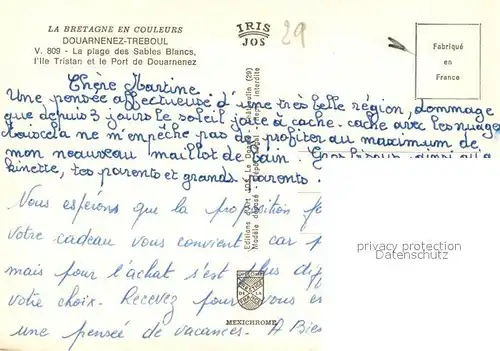 LA BRETAGNE EN COULEURS
DOUARNENEZ-TREBOUL
V. 809 - La plage des Sables Blancs,
l'Ile Tristan et le Port de Douarnenez
IRIS
JOS
29
Fabriqué
en
France
Chère Martine
Une pensée affectueuse d'une très belle région, dommage
que depuis 3 jours le soleil joue à cache-cache avec les nuages
Mais cela ne m'empêche pas de profiter au maximum de
mon nouveau maillot de bain. Gros bisous ainsi qu'à
kinette, tes parents et grands-parents.
Nous espérons que la proposition
votre cadeau vous convient car
mais pour l'achat s'est plus
votre choix. Recevez pour vous
une pensée de vacances. A
Editions d'Art JOS Le Doaré - Châteaulin (29)
Modèle déposé - Reproduction interdite
MEXICHROME
privacy protection
Dadschaenke